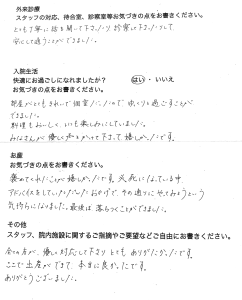 外来診療
スタッフの対応、待合室、診察室等お気づきの点をお書きください。
とても丁寧に話を聞いて下さり
安心して通うことができました。
入院生活
快適にお過ごしになれましたか？ はい ・ いいえ
お気づきの点をお書きください。
部屋がとてもきれいで個室だったので ゆっくり過ごすことが
できました。
料理もおいしく、いつも楽しみにしていました。
みなさんが優しく声をかけて下さって 嬉しかったです。
お産
お気づきの点をお書きください。
褒めてくれたことが嬉しかったです。必死になっている中
アドバイスをしていただいたおかげで、その通りにやってみようという
気持ちになりました。最後は落ちつくことができました。
その他
スタッフ、院内施設に関するご指摘やご要望などご自由にお書きください。
全ての方が、優しく対応して下さり とても ありがたかったです。
ここで出産ができて 本当に良かったです。
ありがとうございました。